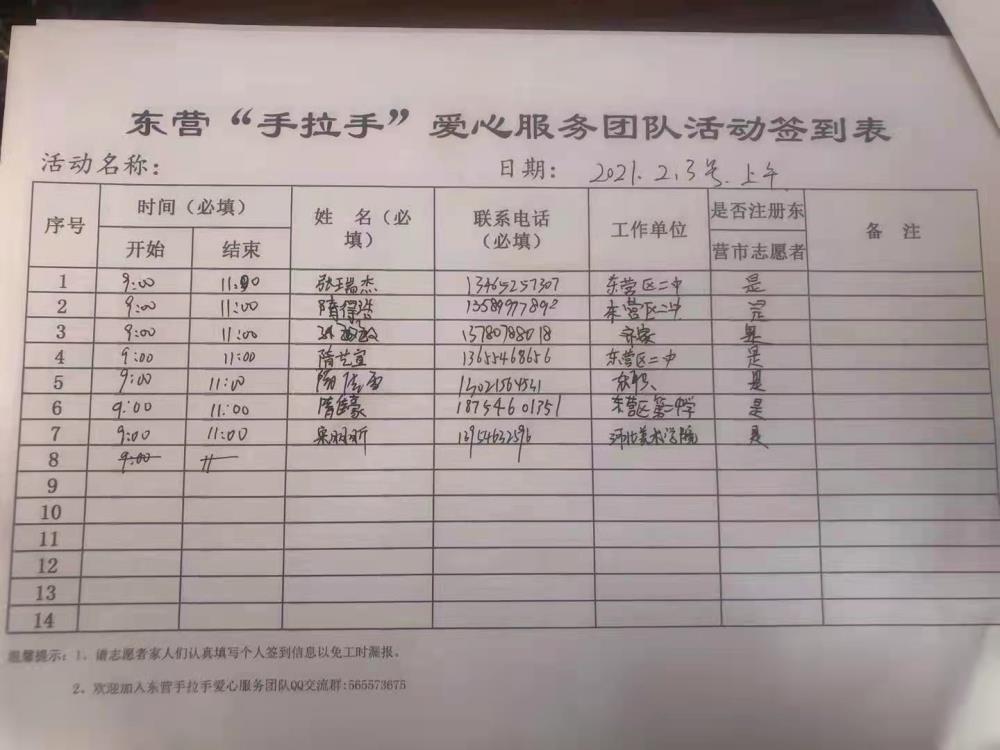 东营“手拉手”爱心服务团队活动签到表
活动名称： 日期： 2021.2.3号.上午.
序号 时间（必填） 姓 名（必填） 联系电话（必填） 工作单位 是否注册东营市志愿者 备 注
开始 结束
1 9:00 11:00 张瑞杰 13465257307 东营区二中 是
2 9:00 11:00 隋得浩 13589977892 东营区二中 是
3 9:00 11:00 13780788018 是
4 9:00 11:00 隋艺宣 13655468656 东营区二中 是
5 9:00 11:00 13021564531 东职 是
6 9:00 11:00 隋佳豪 18754601351 东营区第二中学 是
7 9:00 11:00 13954632596 河北美术学院 是
8 9:00 11
9
10
11
12
13
14
温馨提示：1、请志愿者家人们认真填写个人签到信息以免工时漏报。
2、欢迎加入东营手拉手爱心服务团队QQ交流群:565573675